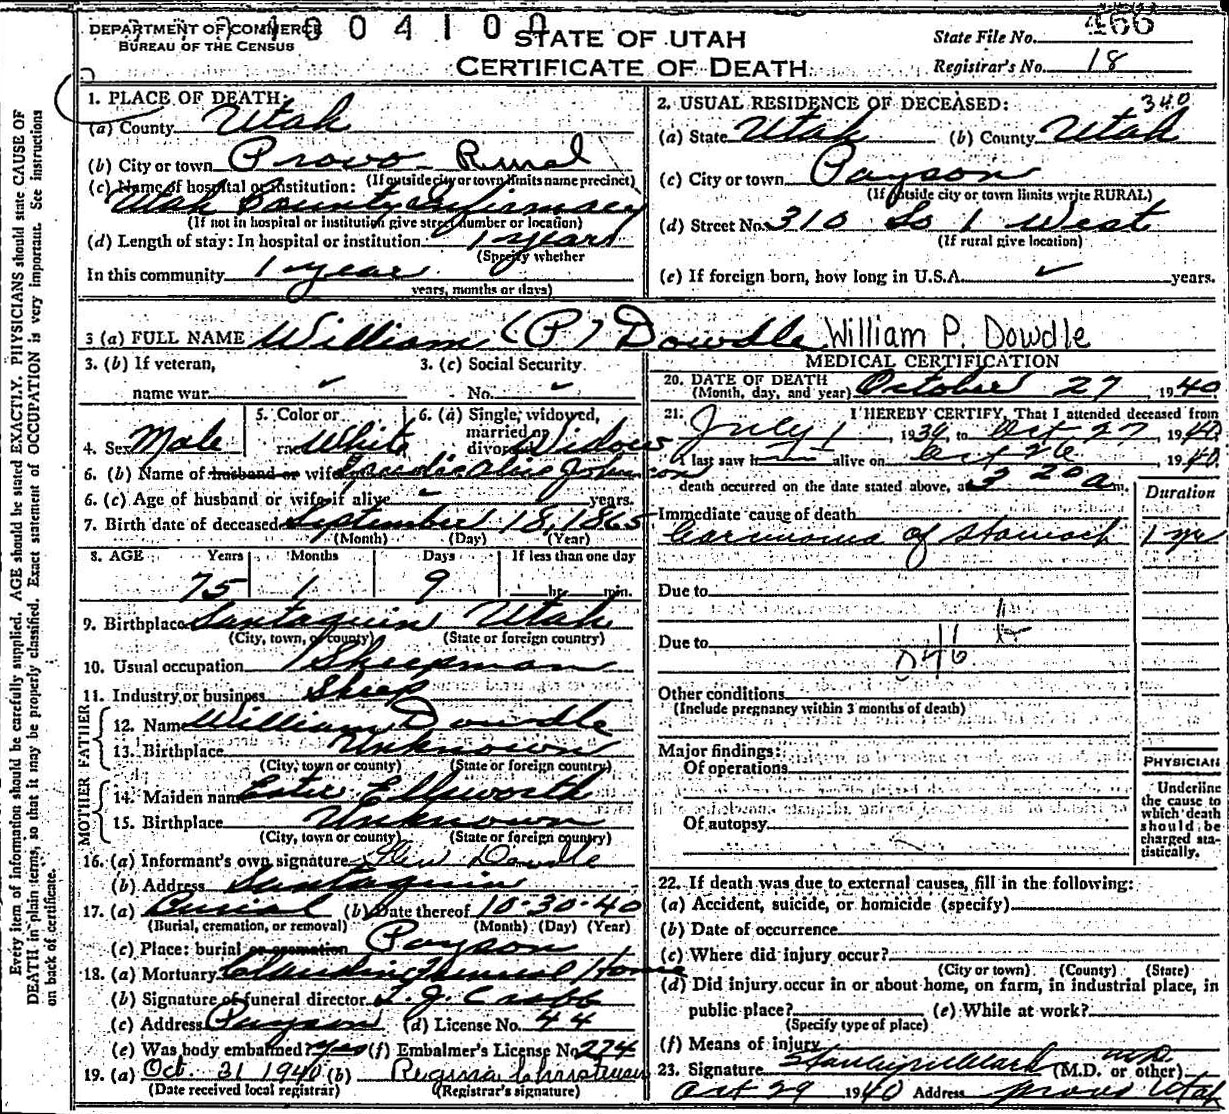 DEPARTMENT OF COMMERCE
BUREAU OF THE CENSUS
0 4 1 0 0
STATE OF UTAH
CERTIFICATE OF DEATH
State File No. 466
Registrar's No. 18
1. PLACE OF DEATH:
(a) County Utah
(b) City or town Provo Rural
(If outside city or town limits name precinct)
(c) Name of hospital or institution:
Utah County Infirmary
(If not in hospital or institution give street number or location)
(d) Length of stay: In hospital or institution 1 year
(Specify whether
In this community 1 year
years, months or days)
2. USUAL RESIDENCE OF DECEASED: 340
(a) State Utah (b) County Utah
(c) City or town Payson
(If outside city or town limits write RURAL)
(d) Street No. 310 So 1 West
(If rural give location)
(e) If foreign born, how long in U.S.A. ✓ years.
3 (a) FULL NAME William (P) Dowdle William P. Dowdle
3. (b) If veteran, name war ✓
3. (c) Social Security No. ✓
4. Sex Male
5. Color or race White
6. (a) Single, widowed, married or divorced Widow
6. (b) Name of husband or wife Alice Johnson
6. (c) Age of husband or wife if alive - years.
7. Birth date of deceased September 18, 1865
(Month) (Day) (Year)
8. AGE Years Months Days If less than one day
75 1 9 hr. min.
9. Birthplace Santaquin Utah
(City, town, or county) (State or foreign country)
10. Usual occupation Sheepman
11. Industry or business Sheep
FATHER
12. Name William Dowdle
13. Birthplace Unknown
(City, town or county) (State or foreign country)
MOTHER
14. Maiden name Ellsworth
15. Birthplace Unknown
(City, town or county) (State or foreign country)
16. (a) Informant's own signature Glen Dowdle
(b) Address Santaquin
17. (a) Burial (b) Date thereof 10-30-40
(Burial, cremation, or removal) (Month) (Day) (Year)
(c) Place: burial or cremation Payson
18. (a) Mortuary Funeral Home
(b) Signature of funeral director L. J. Crabb
(c) Address Payson (d) License No. 44
(e) Was body embalmed? yes (f) Embalmer's License No. 274
19. (a) Oct. 31 1940 (b) Regina Christensen
(Date received local registrar) (Registrar's signature)
MEDICAL CERTIFICATION
20. DATE OF DEATH
(Month, day, and year) October 27, 1940
21. I HEREBY CERTIFY, That I attended deceased from
July 1, 1939, to Oct 27 1940.
I last saw h alive on Oct 26 1940.
death occurred on the date stated above, at 3 20 a m.
Duration
Immediate cause of death
Carcinoma of stomach 1 yr
Due to
Due to
046
Other conditions
(Include pregnancy within 3 months of death)
Major findings:
Of operations
Of autopsy
PHYSICIAN
Underline
the cause to
which death
should be
charged sta-
tistically.
22. If death was due to external causes, fill in the following:
(a) Accident, suicide, or homicide (specify)
(b) Date of occurrence
(c) Where did injury occur?
(City or town) (County) (State)
(d) Did injury occur in or about home, on farm, in industrial place, in
public place? (e) While at work?
(Specify type of place)
(f) Means of injury
23. Signature Stanley M Clark M.D. (M.D. or other)
Oct 29 1940 Address Provo Utah
Every item of information should be carefully supplied. AGE should be stated EXACTLY. PHYSICIANS should state CAUSE OF
DEATH in plain terms, so that it may be properly classified. Exact statement of OCCUPATION is very important. See instructions
on back of certificate.